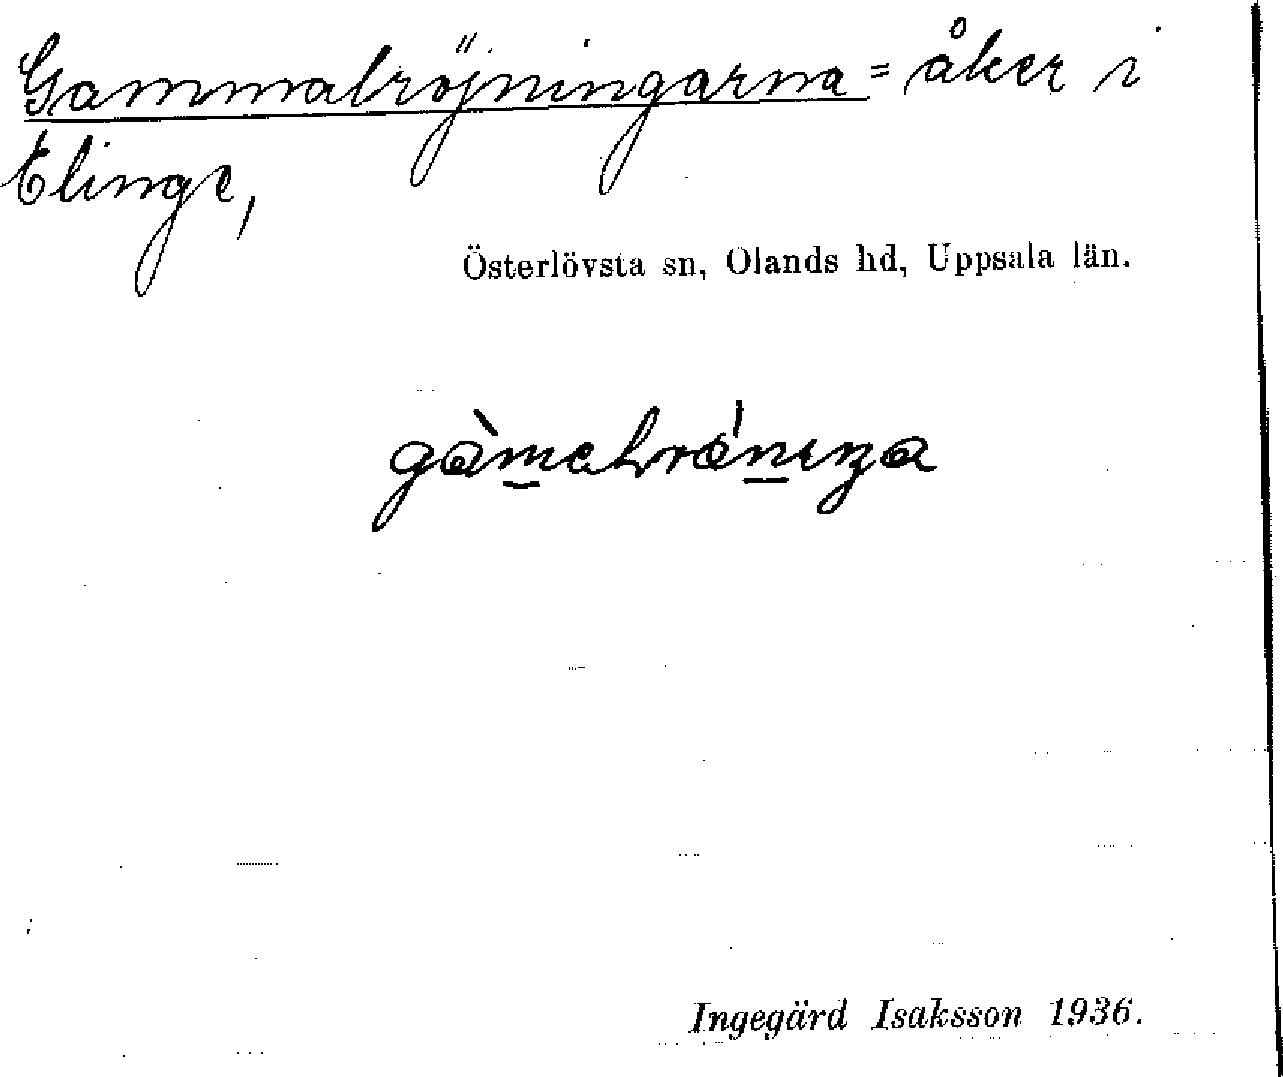 Gammalröjningarna = åker i
Elinge,
Österlövsta sn, Olands hd, Uppsala län.
Ingegärd Isaksson 1936.